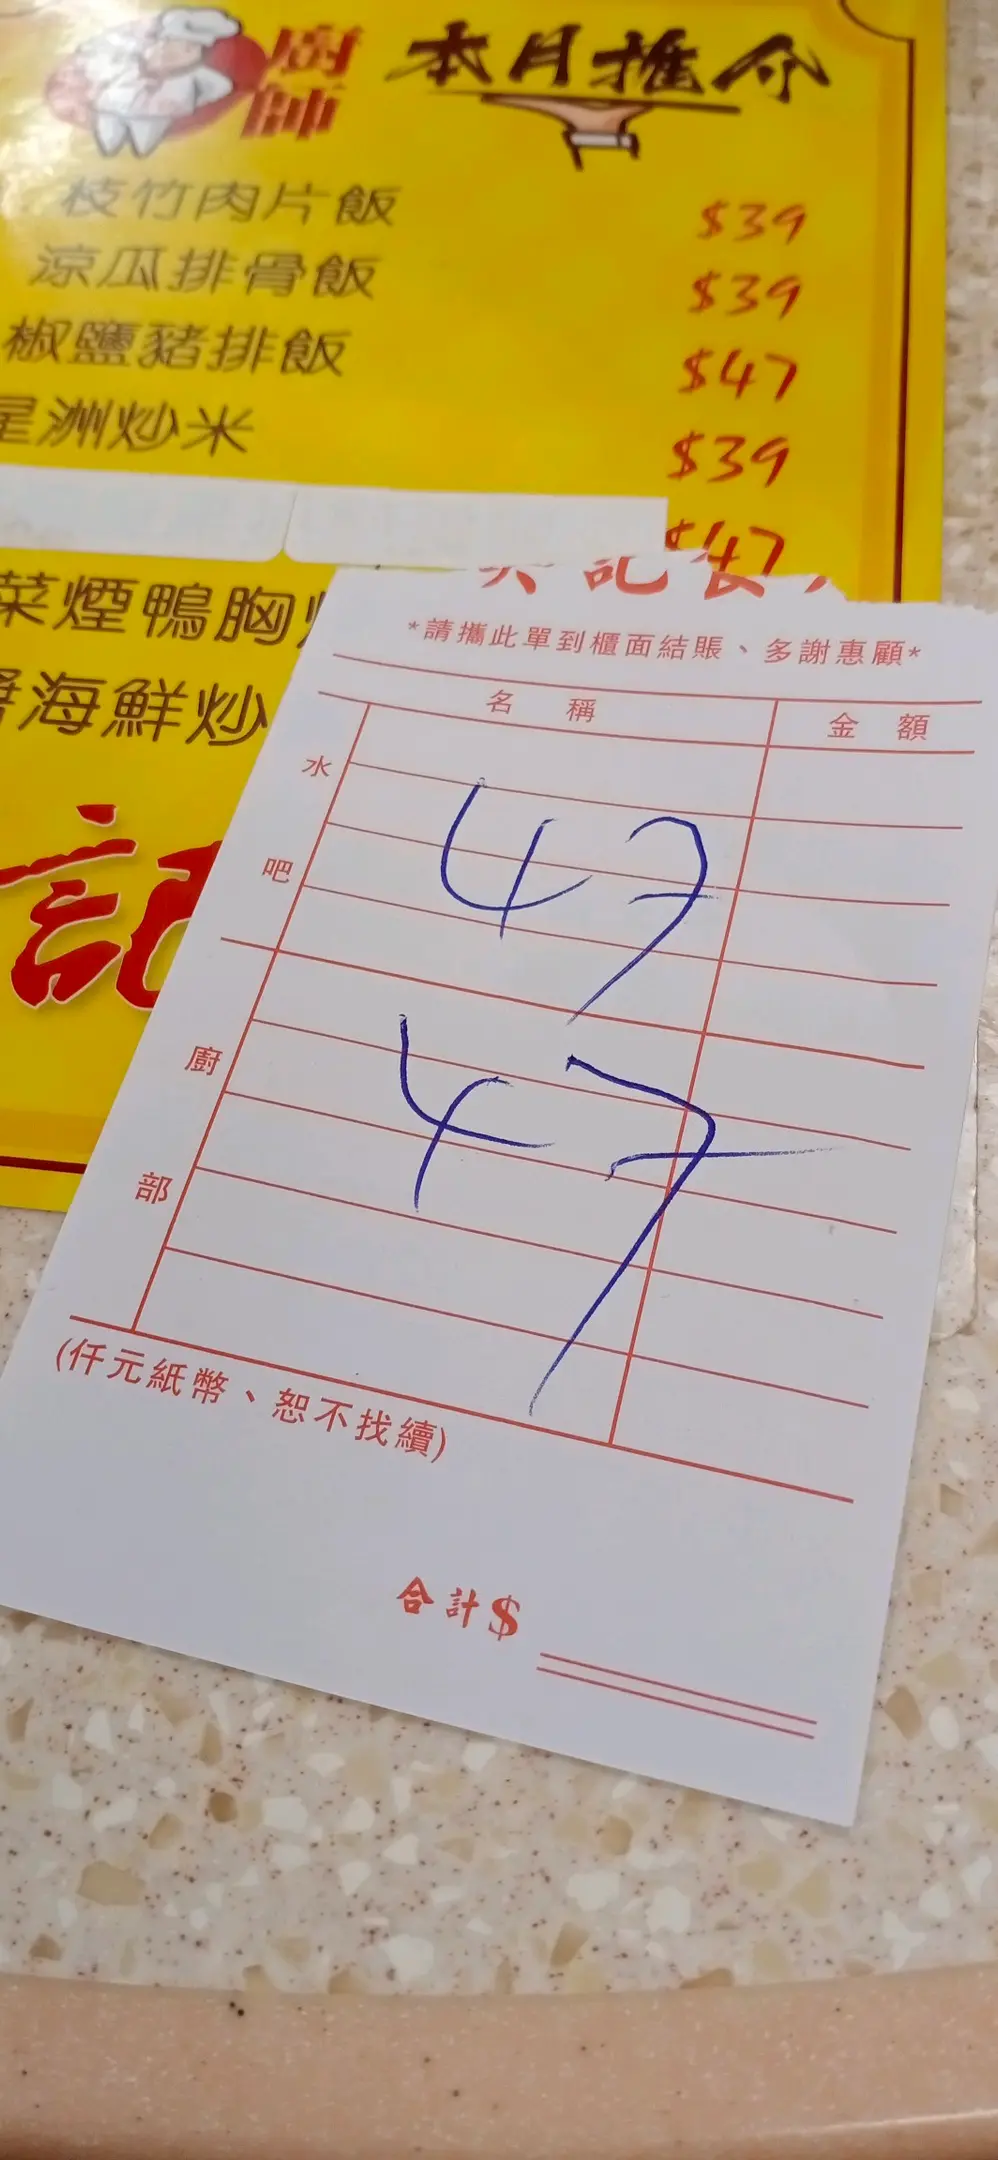 廚師 本月推介
枝竹肉片飯 $39
涼瓜排骨飯 $39
椒鹽豬排飯 $47
星洲炒米 $39
$47
菜煙鴨胸
醬海鮮炒
記
記
*請攜此單到櫃面結賬、多謝惠顧*
名稱 金額
水吧
47
47
廚部
(仟元紙幣、恕不找續)
合計$